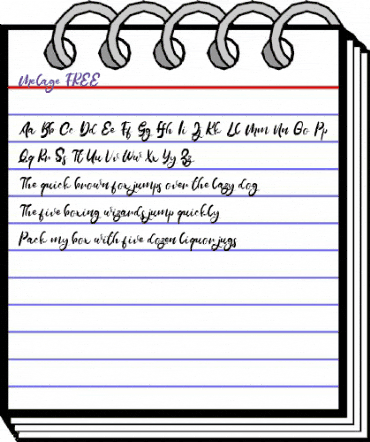 MeCage FREE
Aa Bb Cc Dd Ee Ff Gg Hh Ii Jj Kk Ll Mm Nn Oo Pp
Qq Rr Ss Tt Uu Vv Ww Xx Yy Zz
The quick brown fox jumps over the lazy dog
The five boxing wizards jump quickly
Pack my box with five dozen liquor jugs